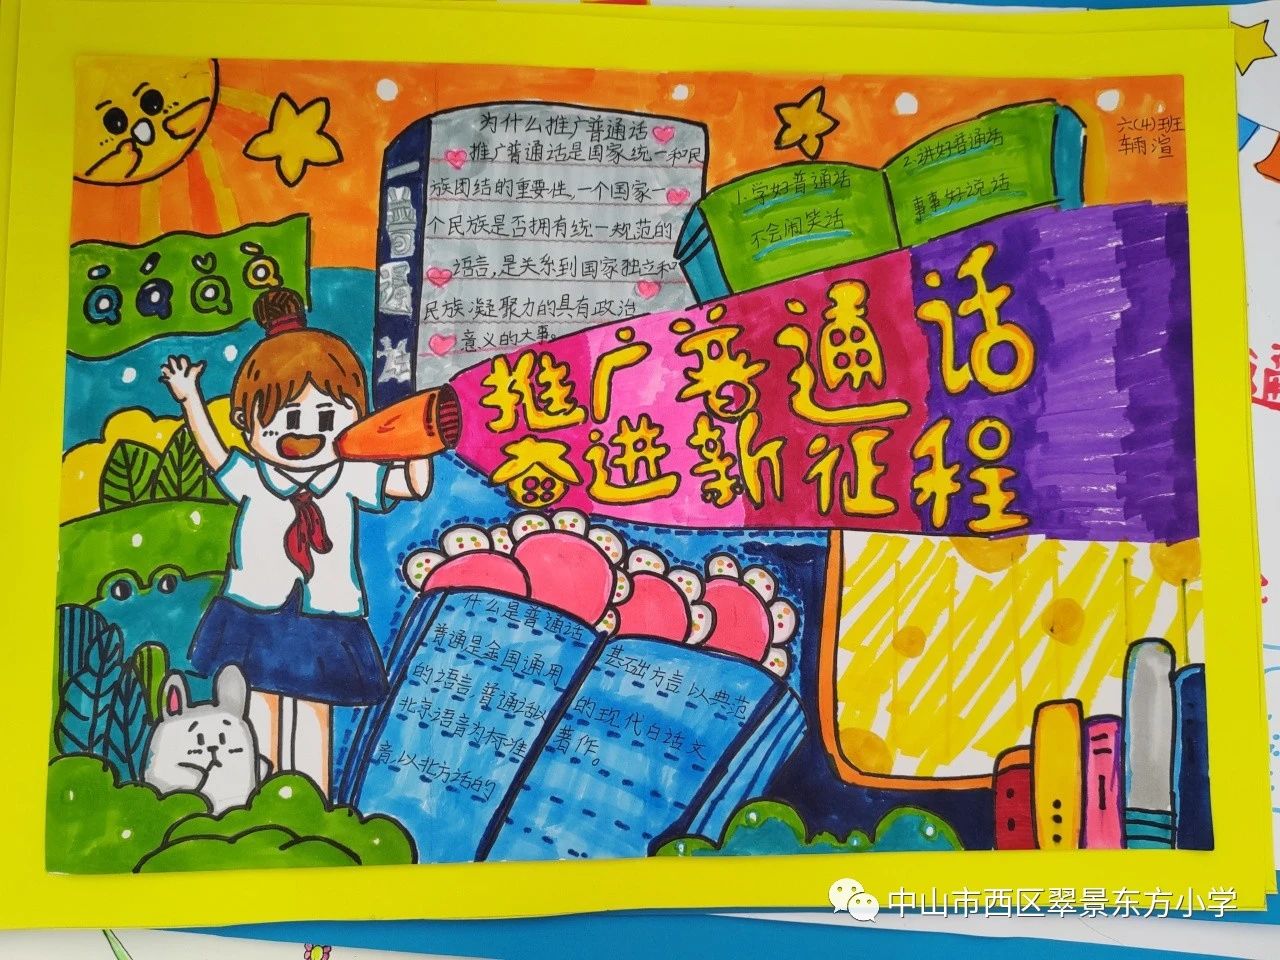 六(4)班
车雨渲
为什么推广普通话
推广普通话是国家统一和民
族团结的重要性,一个国家一
个民族是否拥有统一规范的
语言,是关系到国家独立和
民族凝聚力的具有政治
意义的大事。
普通话
1.学好普通话
不会闹笑话
2.讲好普通话
事事好说话
ā á ǎ à
推广普通话
奋进新征程
什么是普通话
普通是全国通用
的语言,普通话以
北京语音为标准
音,以北方话的
基础方言,以典范
的现代白话文
著作。
中山市西区翠景东方小学